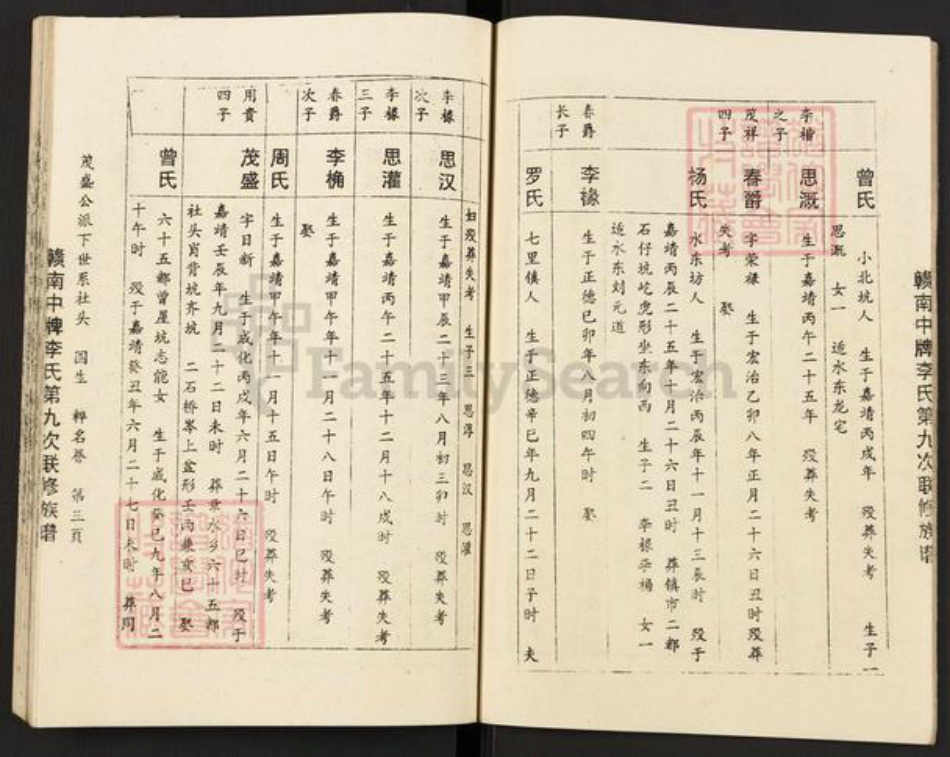 赣南中牌李氏第九次联修族谱
曾氏 小北坑人 生于嘉靖丙戌年 殁葬失考 生子一
思溉 女一 适水东龙宅
李楷之子 思溉 生于嘉靖丙午二十五年 殁葬失考
茂祥四子 春爵 字荣禄 生于宏治乙卯八年正月二十六日丑时殁葬
失考 娶
杨氏 水东坊人 生于宏治丙辰年十一月十三辰时 殁于
嘉靖丙辰二十五年十月二十六日丑时 葬镇市二都
石仔坑屹虎形坐东向西 生子二 李禄李桷 女一
适水东刘元道
春爵长子 李禄 生于正德己卯年八月初四午时 娶
罗氏 七里镇人 生于正德辛巳年九月二十二日子时 夫
妇殁葬失考 生子三 思淳 思汉 思灌
李禄次子 思汉 生于嘉靖甲辰二十三年八月初三卯时 殁葬失考
李禄三子 思灌 生于嘉靖丙午二十五年十二月十八戌时 殁葬失考
春爵次子 李桷 生于嘉靖甲午年十一月二十八日午时 殁葬失考
娶
周氏 生于嘉靖甲午年十一月十五日午时 殁葬失考
用贵四子 茂盛 字日新 生于成化丙戌年六月二十六日巳时 殁于
嘉靖壬辰年九月二十二日未时 葬章水乡六十五都
社头肖背坑齐坑 二石桥岑上盆形壬丙兼亥巳 娶
曾氏 六十五都曾屋坑志能女 生于成化癸巳九年八月二
十午时 殁于嘉靖癸丑年六月二十七日未时 葬同
茂盛公派下世系社头 国生 粹名誉 第三页
赣南中牌李氏第九次联修族谱
FamilySearch